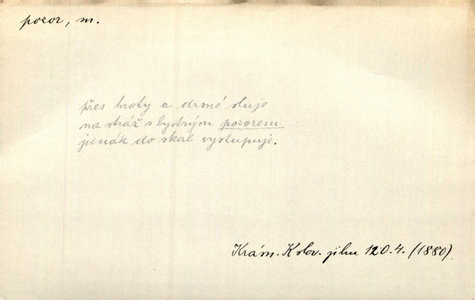 pozor, m.
přes hroty a drsné sluje
na stráž s bydrým pozorem
junák do skal vystupuje.
Krám. K slov. jihu 120.4. (1880).